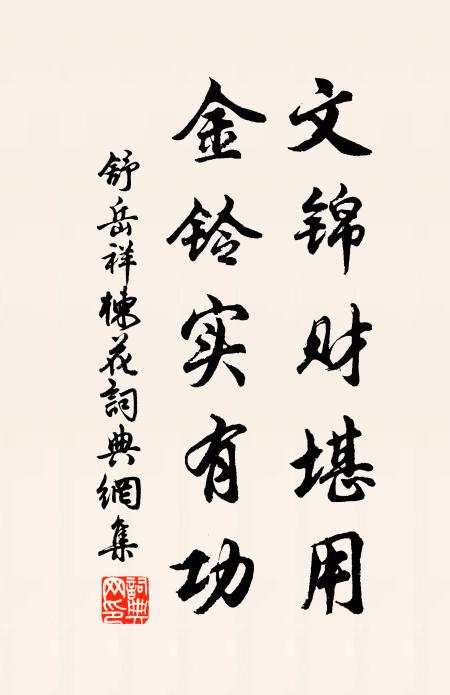 文锦财堪用
金铃实有功
舒岳祥楝花詞典網集
詞典网印